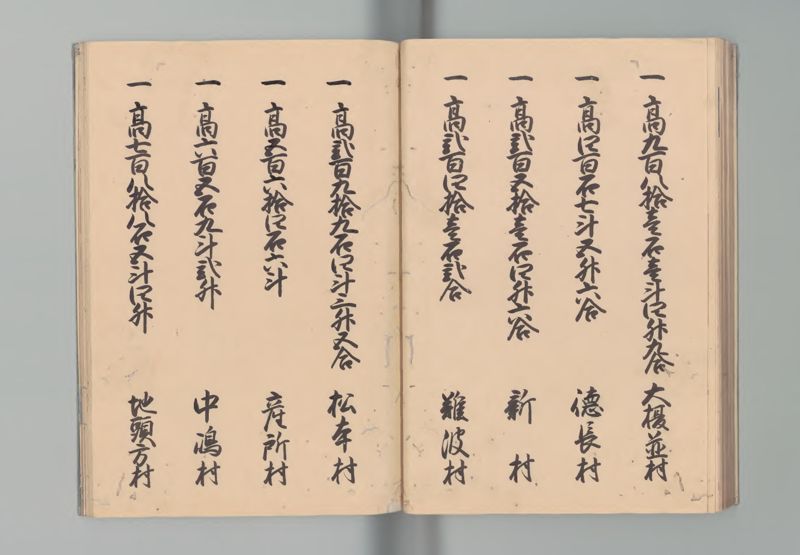 一 高九百八拾壱石壱斗四升九合 大榎並村
一 高四百石七斗五升六合 徳長村
一 高弐百五拾壱石四升六合 新村
一 高弐百四拾壱石弐合 難波村
一 高弐百九拾九石四斗三升五合 松本村
一 高五百六拾四石六斗 産所村
一 高六百五石九斗弐升 中嶋村
一 高七百八拾八石五斗四升 地頭方村